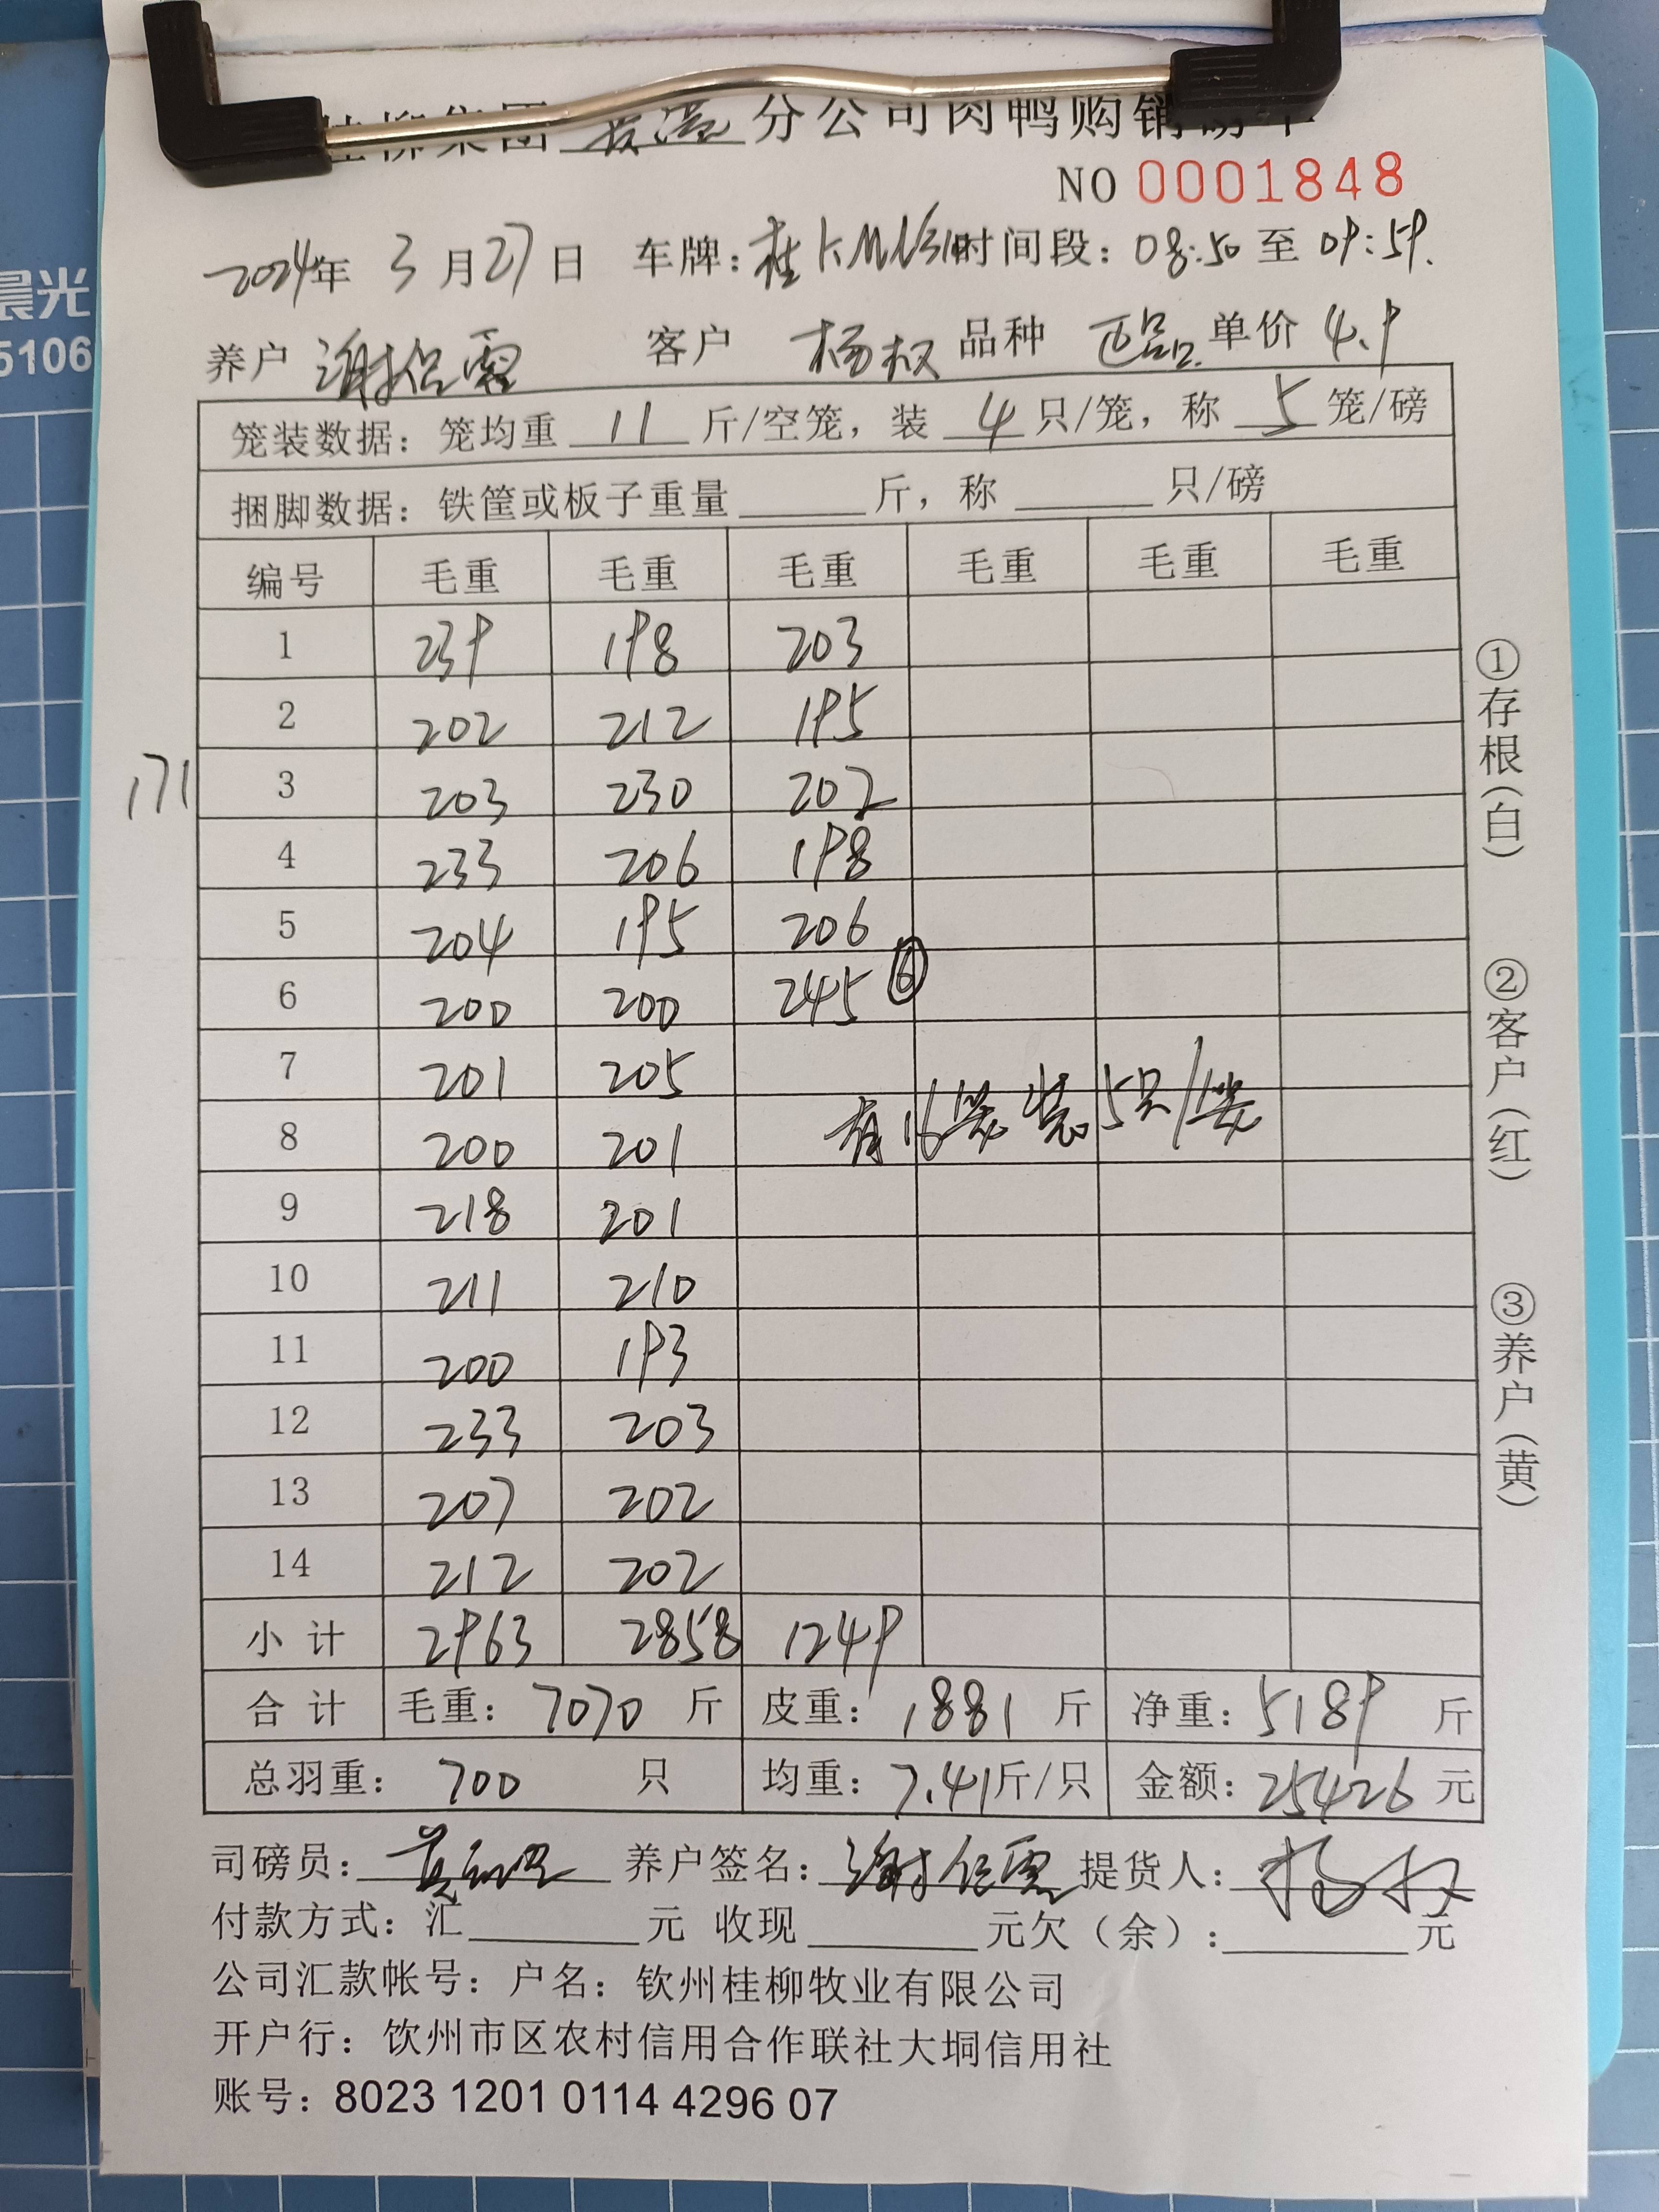 桂柳集团 分公司肉鸭购销磅单
NO 0001848
2024年 3月27日 车牌: 时间段: 08:50 至 09:59.
养户 谢 客户 杨权 品种 正品 单价 4.9
笼装数据: 笼均重 11 斤/空笼, 装 4 只/笼, 称 5 笼/磅
捆脚数据: 铁筐或板子重量 斤, 称 只/磅
编号 毛重 毛重 毛重 毛重 毛重 毛重
1 239 198 203
2 202 212 195
171
3 203 230 202
4 233 206 198
5 204 195 206
6 200 200 245 ⑥
7 201 205
8 200 201 有16笼装5只/笼
9 218 201
10 211 210
11 200 193
12 233 203
13 207 202
14 212 202
小计 2963 2858 1249
合计 毛重: 7070 斤 皮重: 1881 斤 净重: 5189 斤
总羽重: 700 只 均重: 7.41斤/只 金额: 25426 元
司磅员: 养户签名: 谢 提货人: 杨权
付款方式: 汇 元 收现 元欠(余): 元
公司汇款帐号: 户名: 钦州桂柳牧业有限公司
开户行: 钦州市区农村信用合作联社大垌信用社
账号: 8023 1201 0114 4296 07
①存根(白)
②客户(红)
③养户(黄)
晨光
5106